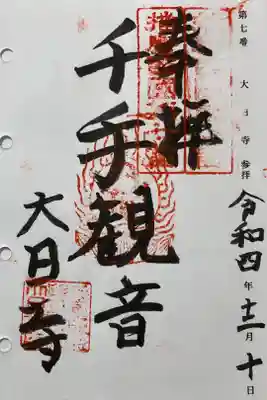 第七番 大日寺参拝
令和四年十二月十日
奉拝
千手観音
大日寺